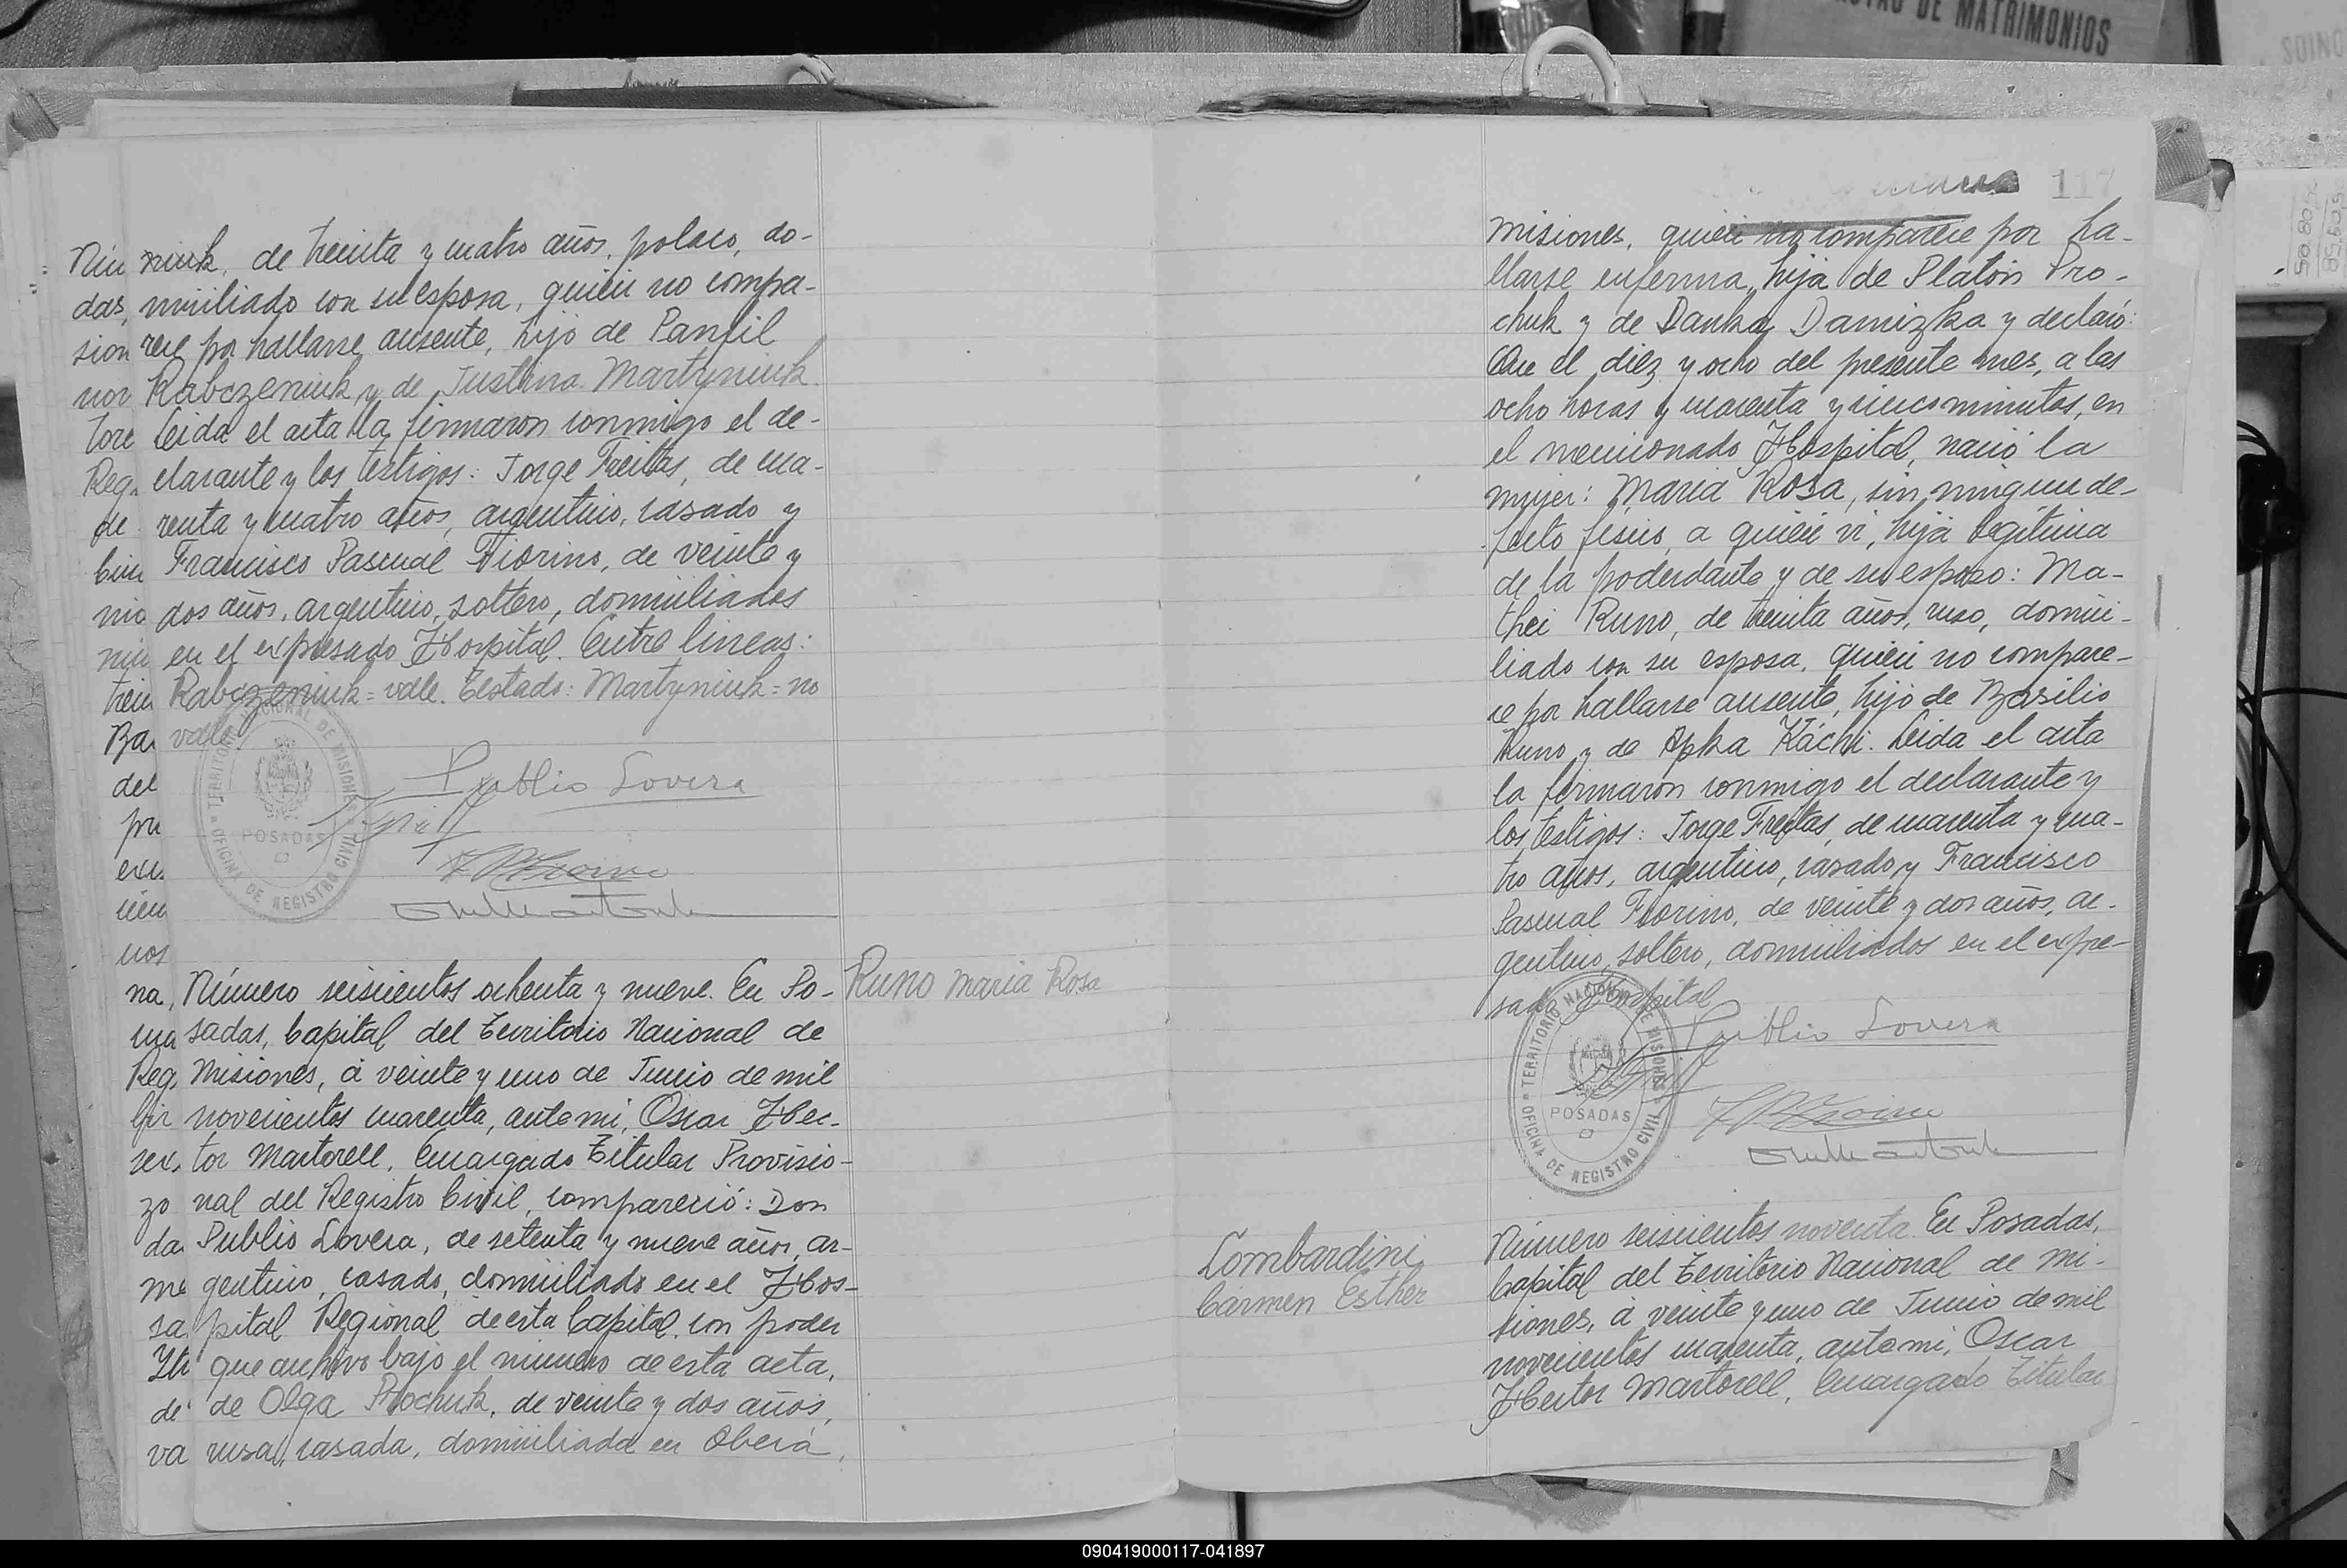 REGISTRO DE MATRIMONIOS
niuk, de treinta y cuatro años, polaco, do-
miciliado con su esposa, quién no compa-
rece por hallarse ausente, hijo de Panfil
Rabczeniuk y de Justina Martyniuk.
Leida el acta la firmaron conmigo el de-
clarante y los testigos: Jorge Freitas, de cua-
renta y cuatro años, argentino, casado y
Francisco Pascual Fiorino, de veinte y
dos años, argentino, soltero, domiciliados
en el expresado Hospital. Entre lineas:
Rabczeniuk = vale. Testado: Martyniuk = no
vale.
TERRITORIO NACIONAL DE MISIONES
POSADAS
OFICINA DE REGISTRO CIVIL
Publio Lovera
Número seiscientos ochenta y nueve. En Po-
Runo Maria Rosa
sadas, Capital del Territorio Nacional de
Misiones, á veinte y uno de Junio de mil
novecientos cuarenta, ante mi, Oscar Hec-
tor Martorell, Encargado Titular Provisio-
nal del Registro Civil, compareció: Don
Publio Lovera, de setenta y nueve años, ar-
gentino, casado, domiciliado en el Hos-
pital Regional de esta Capital, con poder
que archivo bajo el número de esta acta,
de Olga Prochuk, de veinte y dos años,
rusa, casada, domiciliada en Oberá,
117
Misiones, quién no comparece por ha-
llarse enferma, hija de Platón Pro-
chuk y de Danka Damizka y declaró:
Que el diez y ocho del presente mes, a las
ocho horas y cuarenta y cinco minutos, en
el mencionado Hospital, nació la
mujer: Maria Rosa, sin ningun de-
fecto fisico, a quién vi, hija legitima
de la poderdante y de su esposo: Ma-
thei Runo, de treinta años, ruso, domici-
liado con su esposa, quién no compare-
ce por hallarse ausente, hijo de Basilio
Runo y de Apka Kachi. Leida el acta
la firmaron conmigo el declarante y
los testigos: Jorge Freitas, de cuarenta y cua-
tro años, argentino, casado y Francisco
Pascual Fiorino, de veinte y dos años, ar-
gentino, soltero, domiciliados en el expre-
sado Hospital
TERRITORIO NACIONAL DE MISIONES
POSADAS
OFICINA DE REGISTRO CIVIL
Publio Lovera
Lombardini
Carmen Esther
Número seiscientos noventa. En Posadas,
Capital del Territorio Nacional de Mi-
siones, á veinte y uno de Junio de mil
novecientos cuarenta, ante mi, Oscar
Hector Martorell, Encargado Titular
090419000117-041897